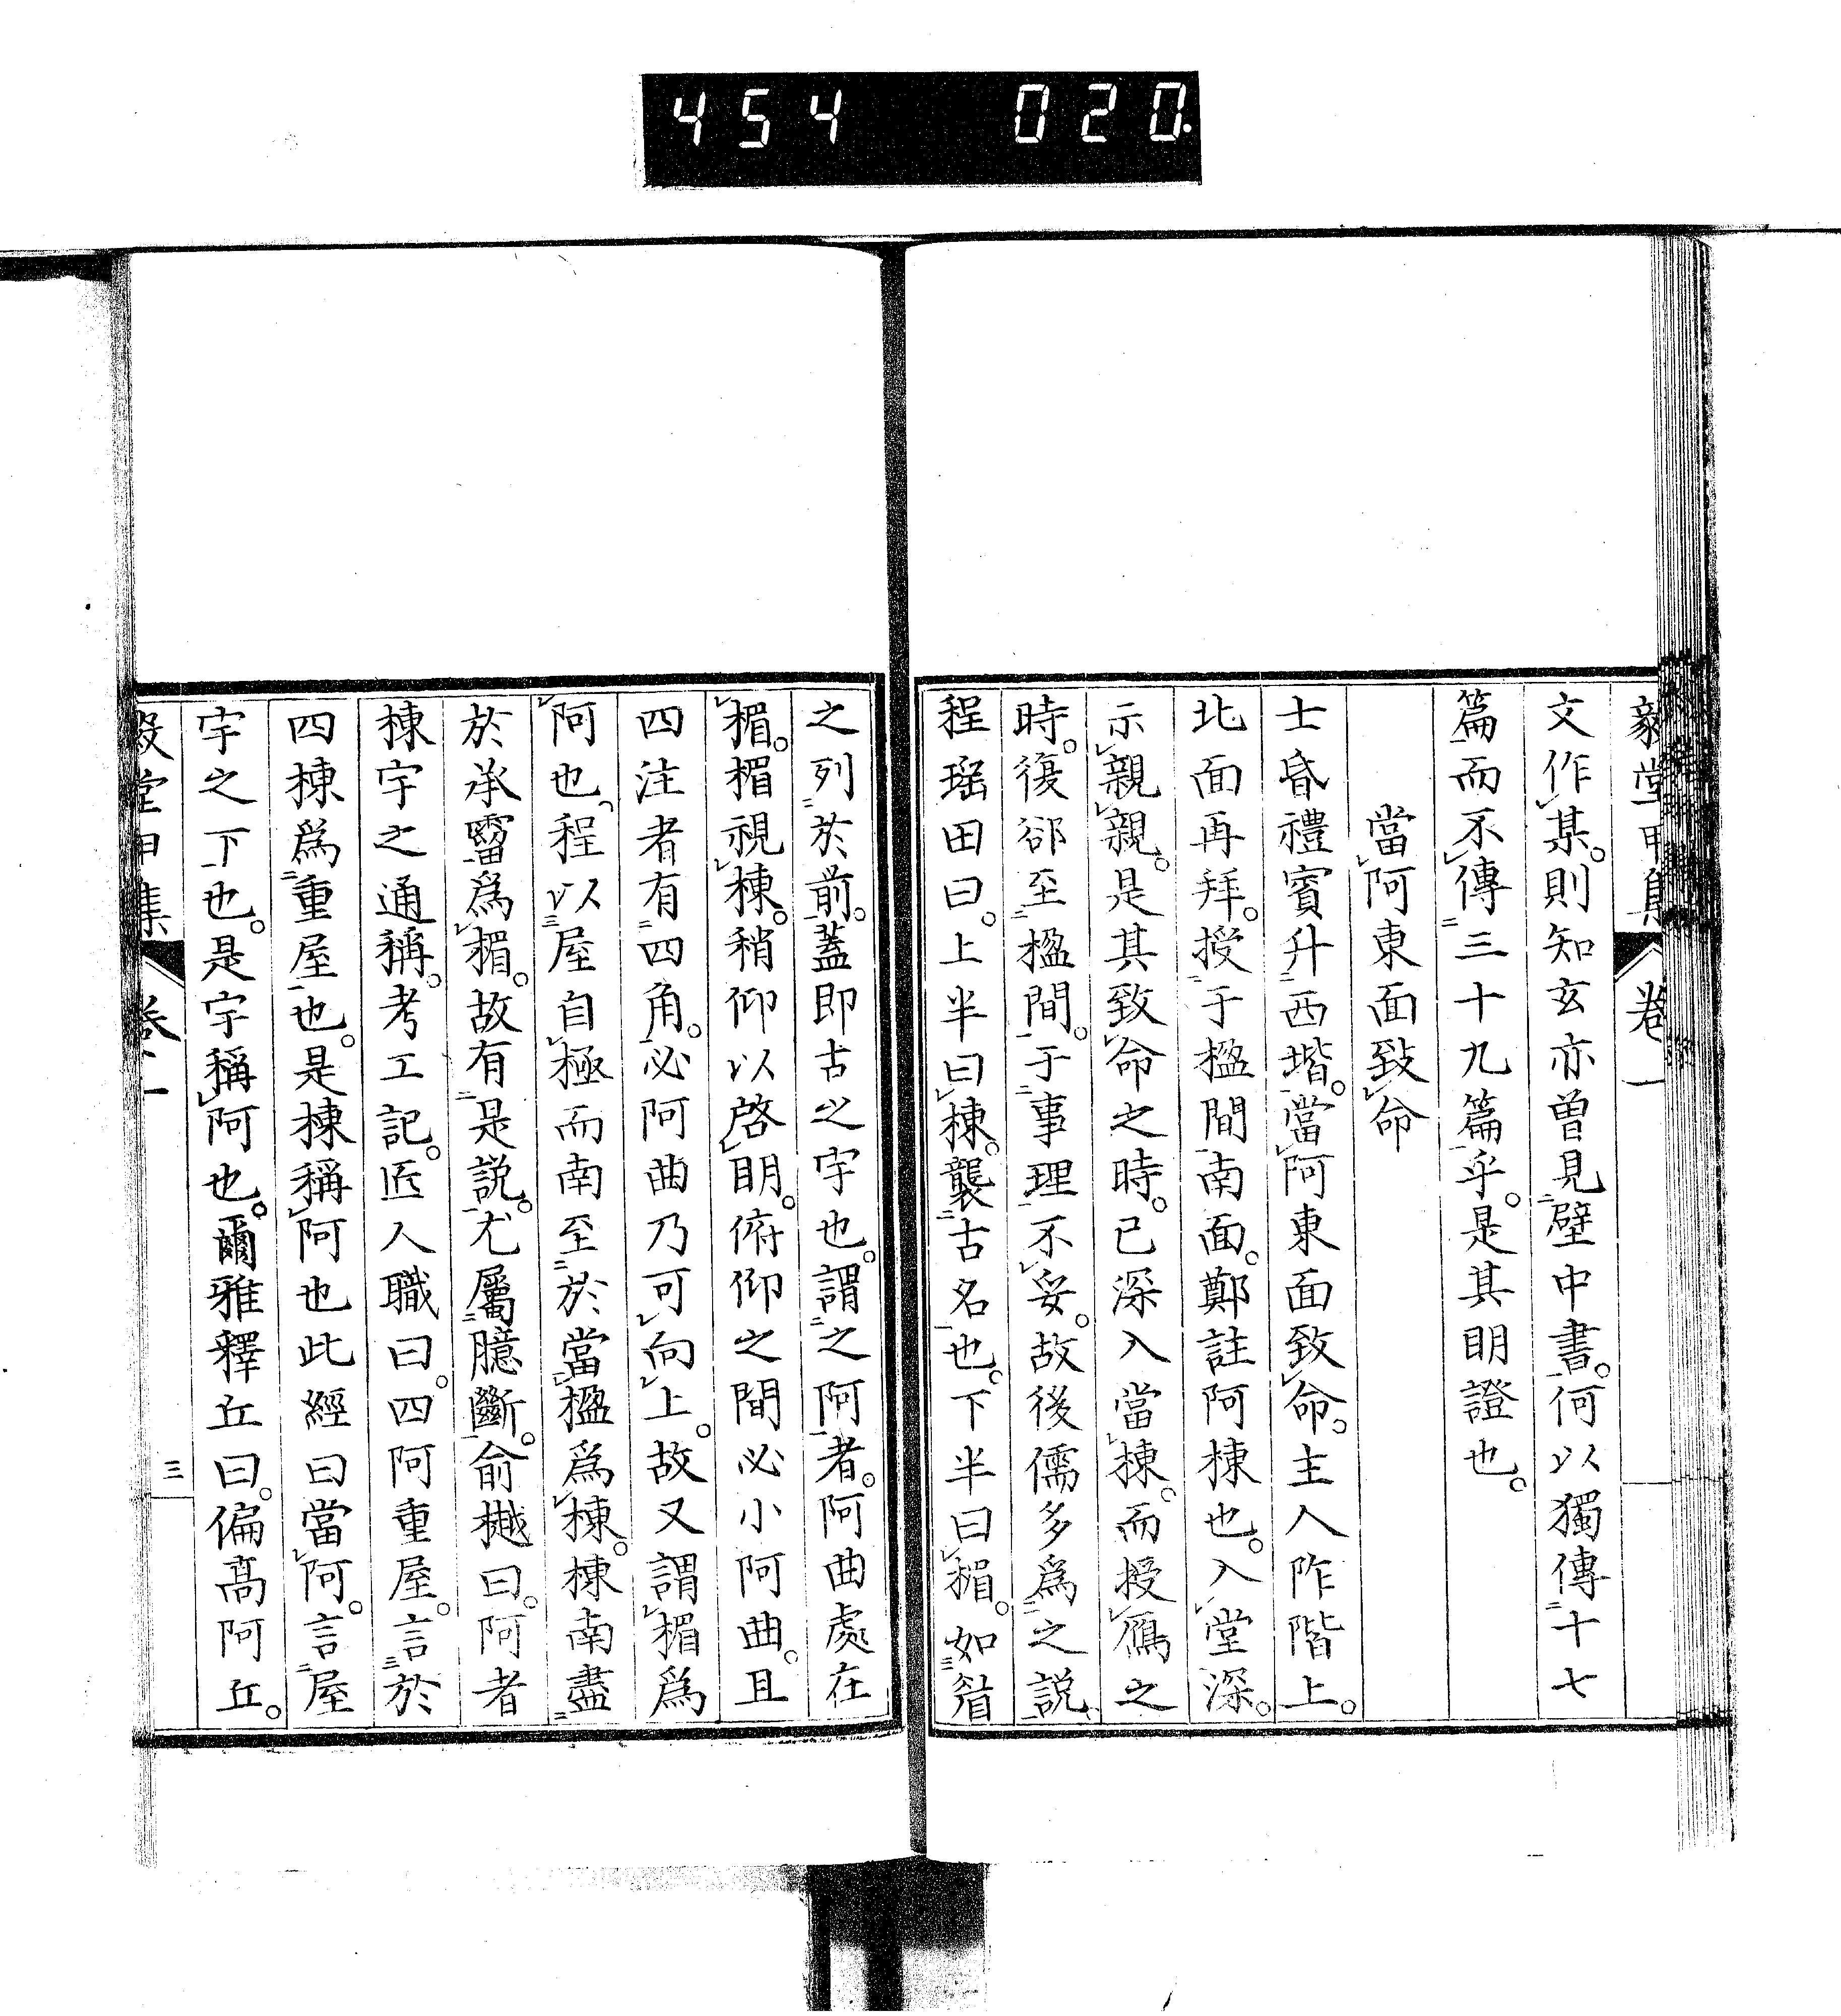 454 020.
毅堂甲集 卷一
文作某。則知玄亦曾見壁中書。何以獨傳十七
篇而不傳三十九篇乎。是其明證也。
當阿東面致命
士昏禮賓升西堦。當阿東面致命。主人阼階上。
北面再拜。授于楹間南面。鄭註阿棟也。入堂深。
示親親。是其致命之時。已深入當棟。而授鴈之
時。復郤至楹間。于事理不妥。故後儒多爲之說。
程瑶田曰。上半曰棟。襲古名也。下半曰楣。如眉
之列於前。蓋即古之宇也。謂之阿者。阿曲處在
楣。楣視棟。稍仰以啓明。俯仰之間必小阿曲。且
四注者有四角。必阿曲乃可向上。故又謂楣爲
阿也。程以屋自極而南至於當楹爲棟。棟南盡
於承霤爲楣。故有是説。尤屬臆斷。俞樾曰。阿者
棟宇之通稱。考工記。匠人職曰。四阿重屋。言於
四棟爲重屋也。是棟稱阿也此經曰當阿。言屋
宇之下也。是宇稱阿也。爾雅釋丘曰。偏高阿丘。
毅堂甲集 卷一 三